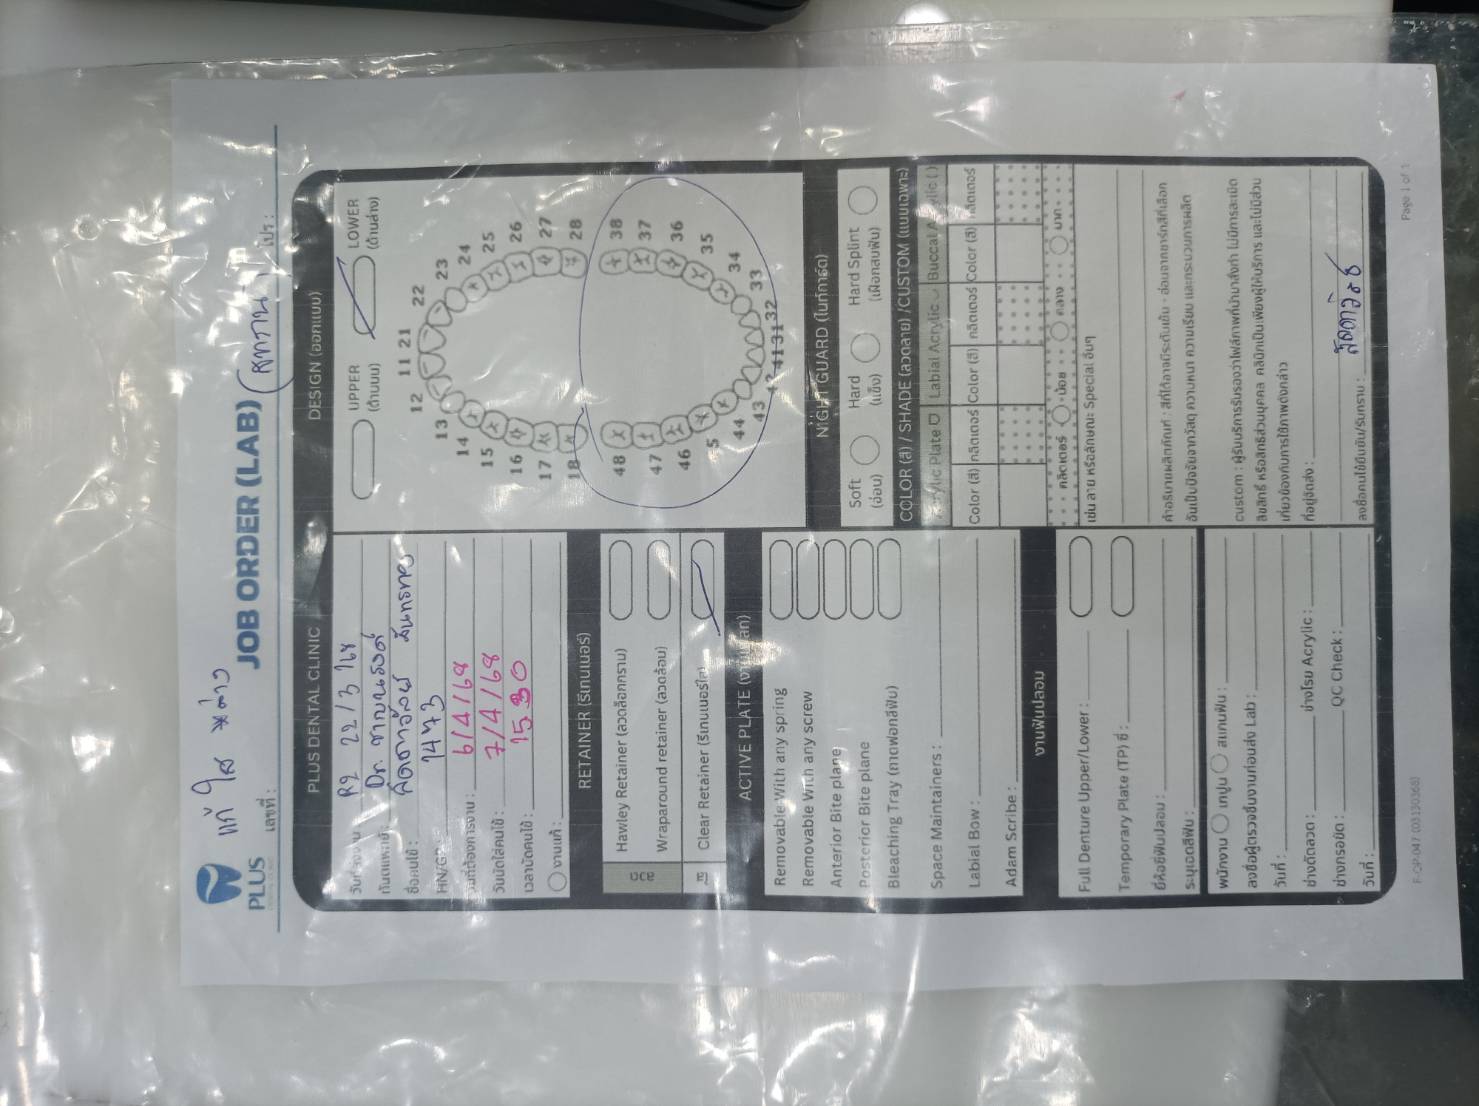 แก้ ใส ล่าง
PLUS
JOB ORDER (LAB)
เลขที่ :
PLUS DENTAL CLINIC
R2 22/3/68
ทันตแพทย์
Dr.
ชื่อคนไข้ :
HN/
1473
วันที่ต้องการงาน : 6/4/68
วันนัดใส่คนไข้ : 7/4/68
เวลานัดคนไข้ : 15.30
งานแก้ :
RETAINER (รีเทนเนอร์)
ลวด
Hawley Retainer (ลวดล็อกกราม)
Wraparound retainer (ลวดล้อม)
Clear Retainer (รีเทนเนอร์ใส)
ACTIVE PLATE
Removable With any spring
Removable With any screw
Anterior Bite plane
Posterior Bite plane
Bleaching Tray (ถาดฟอกสีฟัน)
Space Maintainers :
Labial Bow :
Adam Scribe :
งานฟันปลอม
Full Denture Upper/Lower :
Temporary Plate (TP) ซี่ :
ยี่ห้อซี่ฟันปลอม :
ระบุเฉดสีฟัน :
พนักงาน เทปูน สแกนฟัน :
ลงชื่อผู้ตรวจชิ้นงานก่อนส่ง Lab :
วันที่ :
ช่างดัดลวด : ช่างโรย Acrylic :
ช่างกรอขัด : QC Check :
วันที่ :
DESIGN (ออกแบบ)
UPPER
(ด้านบน)
LOWER
(ด้านล่าง)
12 11 21 22
13 23
14 24
15 25
16 26
17 27
18 28
48 38
47 37
46 36
5 35
44 34
43 33
42 41 31 32
NIGHT GUARD (ไนท์การ์ด)
Soft
(อ่อน)
Hard
(แข็ง)
Hard Splint
(เฝือกสบฟัน)
COLOR (สี) / SHADE (ลวดลาย) /CUSTOM (แบบเฉพาะ)
Plate Labial Acrylic Buccal
Color (สี) กลิตเตอร์ Color (สี) กลิตเตอร์ Color (สี) กลิตเตอร์
กลิตเตอร์ น้อย กลาง มาก
เช่น ลาย หรือลักษณะ Special อื่นๆ
คำอธิบายผลิตภัณฑ์ : สีที่ได้อาจมีระดับเข้ม - อ่อนจากชาร์ทสีที่เลือก
อันเป็นปัจจัยจากวัสดุ ความหนา ความเรียบ และกระบวนการผลิต
custom : ผู้รับบริการรับรองว่าไฟล์ภาพที่นำมาสั่งทำ ไม่มีการละเมิด
ลิขสิทธิ์ หรือสิทธิส่วนบุคคล คลินิกเป็นเพียงผู้ให้บริการ และไม่มีส่วน
เกี่ยวข้องกับการใช้ภาพดังกล่าว
ที่อยู่จัดส่ง :
ลงชื่อคนไข้ยืนยัน/รับทราบ :
Page 1 of 1